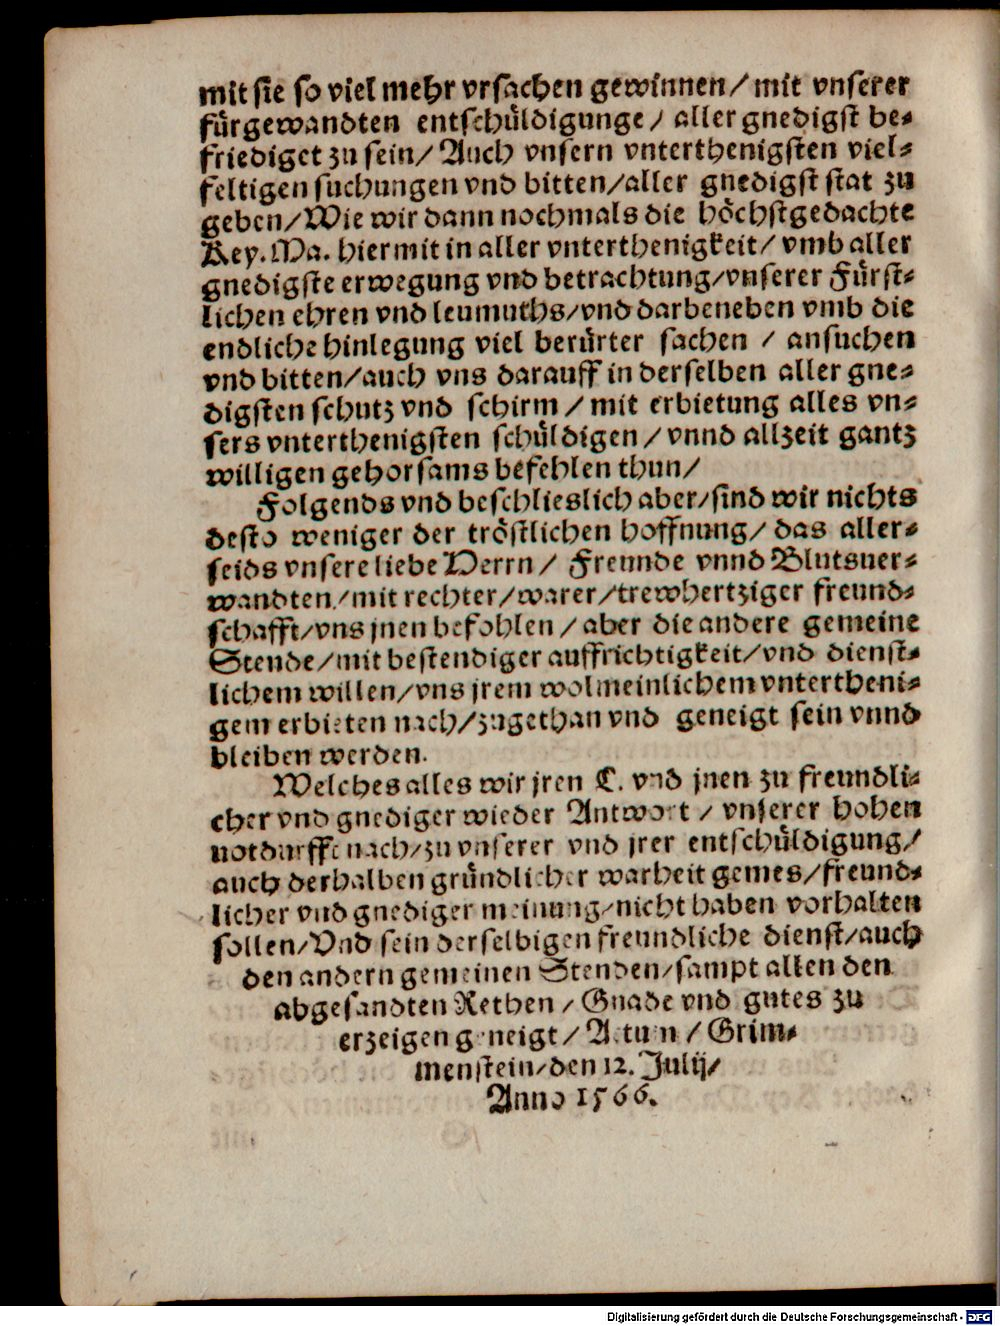 mit sie so viel mehr vrsachen gewinnen / mit vnserer
fürgewandten entschüldigunge / aller gnedigst be-
friediget zu sein / Auch vnsern vnterthenigsten viel-
feltigen suchungen vnd bitten / aller gnedigst stat zu
geben / Wie wir dann nochmals die höchstgedachte
Key. Ma. hiermit in aller vnterthenigkeit / vmb aller
gnedigste erwegung vnd betrachtung / vnserer Fürst-
lichen ehren vnd leumuths / vnd darbeneben vmb die
endliche hinlegung viel berürter sachen / ansuchen
vnd bitten / auch vns darauff in derselben aller gne-
digsten schutz vnd schirm / mit erbietung alles vn-
sers vnterthenigsten schüldigen / vnnd allzeit gantz
willigen gehorsams befehlen thun /
Folgends vnd beschlieslich aber / sind wir nichts
desto weniger der tröstlichen hoffnung / das aller-
seids vnsere liebe Herrn / Freunde vnnd Blutsuer-
wandten / mit rechter / warer / trewhertziger freund-
schafft / vns jnen befohlen / aber die andere gemeine
Stende / mit bestendiger auffrichtigkeit / vnd dienst-
lichem willen / vns jrem wolmeinlichem vntertheni-
gem erbieten nach / zugethan vnd geneigt sein vnnd
bleiben werden.
Welches alles wir jren C. vnd jnen zu freundli-
cher vnd gnediger wieder Antwort / vnserer hohen
notdurfft nach / zu vnserer vnd jrer entschüldigung /
auch derhalben gründlicher warheit gemes / freund-
licher vnd gnediger meinung / nicht haben vorhalten
sollen / Vnd sein derselbigen freundliche dienst / auch
den andern gemeinen Stenden / sampt allen den
abgesandten Rethen / Gnade vnd gutes zu
erzeigen geneigt / Actum / Grim-
menstein / den 12. Julij /
Anno 1566.
Digitalisierung gefördert durch die Deutsche Forschungsgemeinschaft - DFG